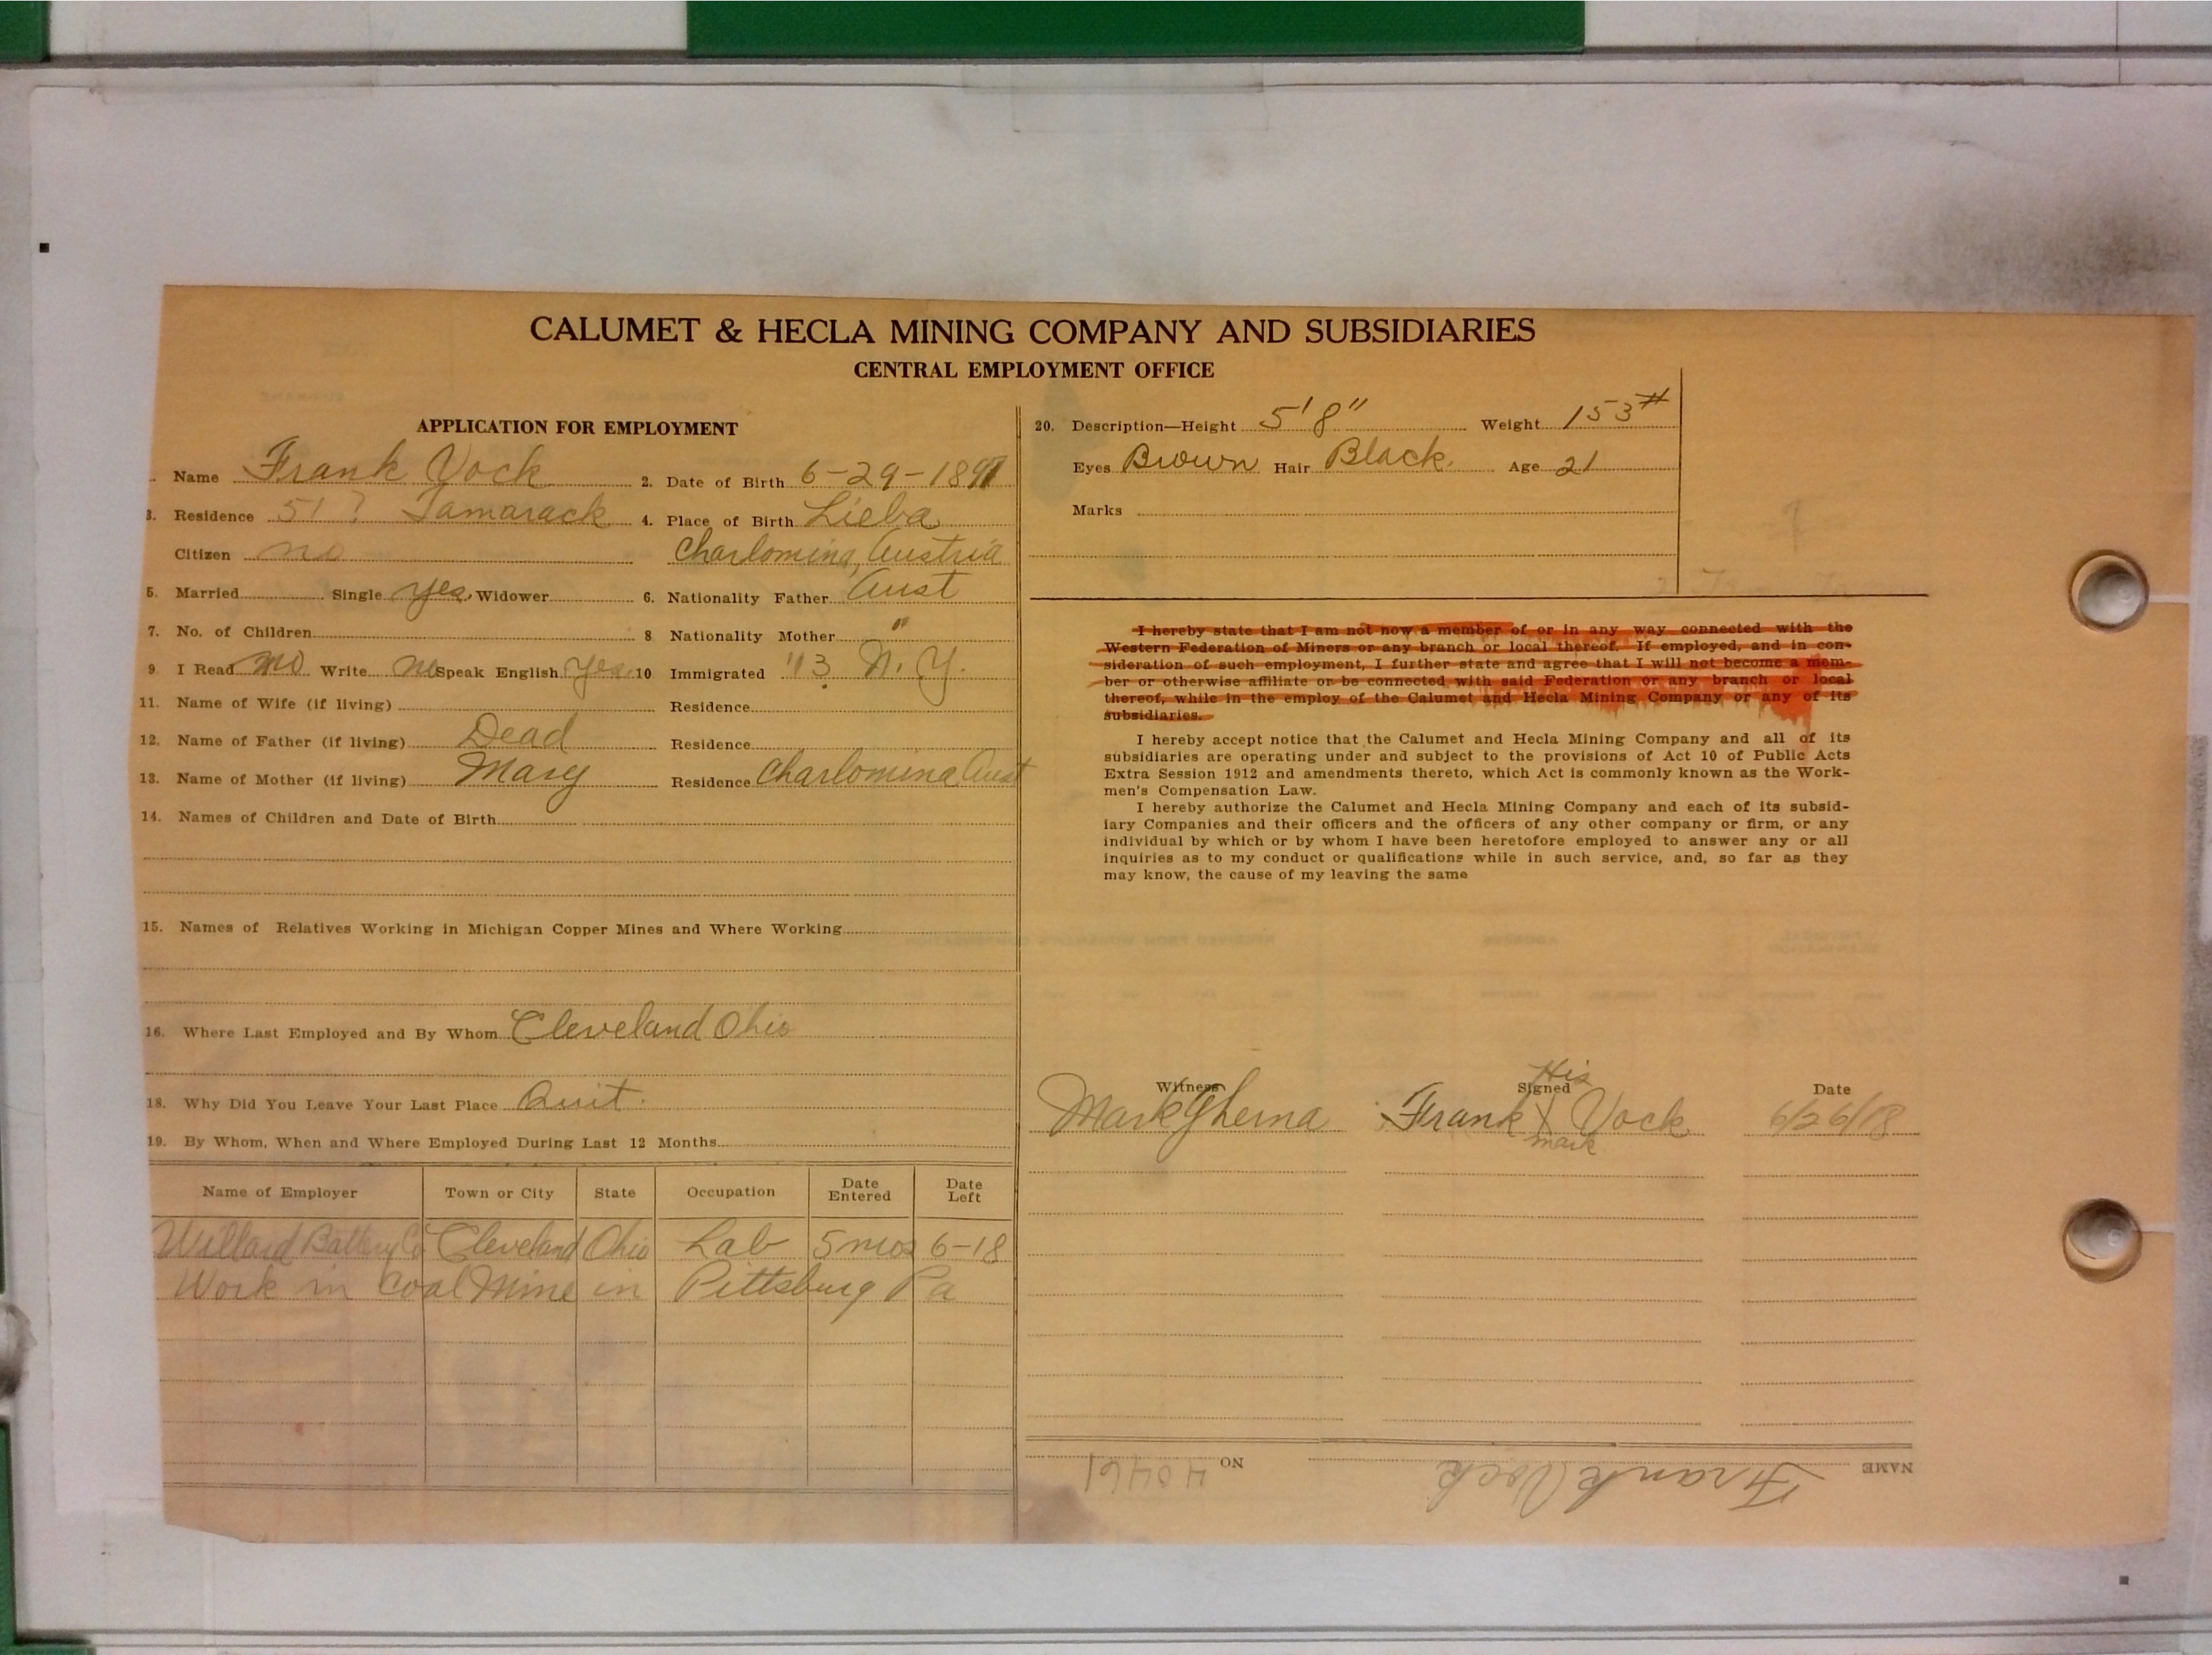 CALUMET & HECLA MINING COMPANY AND SUBSIDIARIES
CENTRAL EMPLOYMENT OFFICE
APPLICATION FOR EMPLOYMENT
Name Frank Vock 2. Date of Birth 6-29-1897
3. Residence 51? Tamarack 4. Place of Birth Lieba
Citizen no Charlomina, Austria
5. Married Single yes. Widower 6. Nationality Father Aust
7. No. of Children 8 Nationality Mother "
9 I Read no Write no Speak English yes. 10 Immigrated '13 N.Y.
11. Name of Wife (if living) Residence
12. Name of Father (if living) Dead Residence
13. Name of Mother (if living) Mary Residence Charlomina Aust
14. Names of Children and Date of Birth
15. Names of Relatives Working in Michigan Copper Mines and Where Working
16. Where Last Employed and By Whom Cleveland Ohio
18. Why Did You Leave Your Last Place Quit.
19. By Whom, When and Where Employed During Last 12 Months
Name of Employer Town or City State Occupation Date Entered Date Left
Willard Battery Co Cleveland Ohio Lab 5 mos 6-18
Work in Coal Mine in Pittsburg Pa
20. Description—Height 5'8" Weight 153#
Eyes Brown Hair Black. Age 21
Marks
I hereby state that I am not now a member of or in any way connected with the
Western Federation of Miners or any branch or local thereof. If employed, and in con-
sideration of such employment, I further state and agree that I will not become a mem-
ber or otherwise affiliate or be connected with said Federation or any branch or local
thereof, while in the employ of the Calumet and Hecla Mining Company or any of its
subsidiaries.
I hereby accept notice that the Calumet and Hecla Mining Company and all of its
subsidiaries are operating under and subject to the provisions of Act 10 of Public Acts
Extra Session 1912 and amendments thereto, which Act is commonly known as the Work-
men's Compensation Law.
I hereby authorize the Calumet and Hecla Mining Company and each of its subsid-
iary Companies and their officers and the officers of any other company or firm, or any
individual by which or by whom I have been heretofore employed to answer any or all
inquiries as to my conduct or qualifications while in such service, and, so far as they
may know, the cause of my leaving the same
Witness Signed Date
His
Mark Gherna Frank X Vock 6/26/18
mark
NAME Frank Vock NO 40461